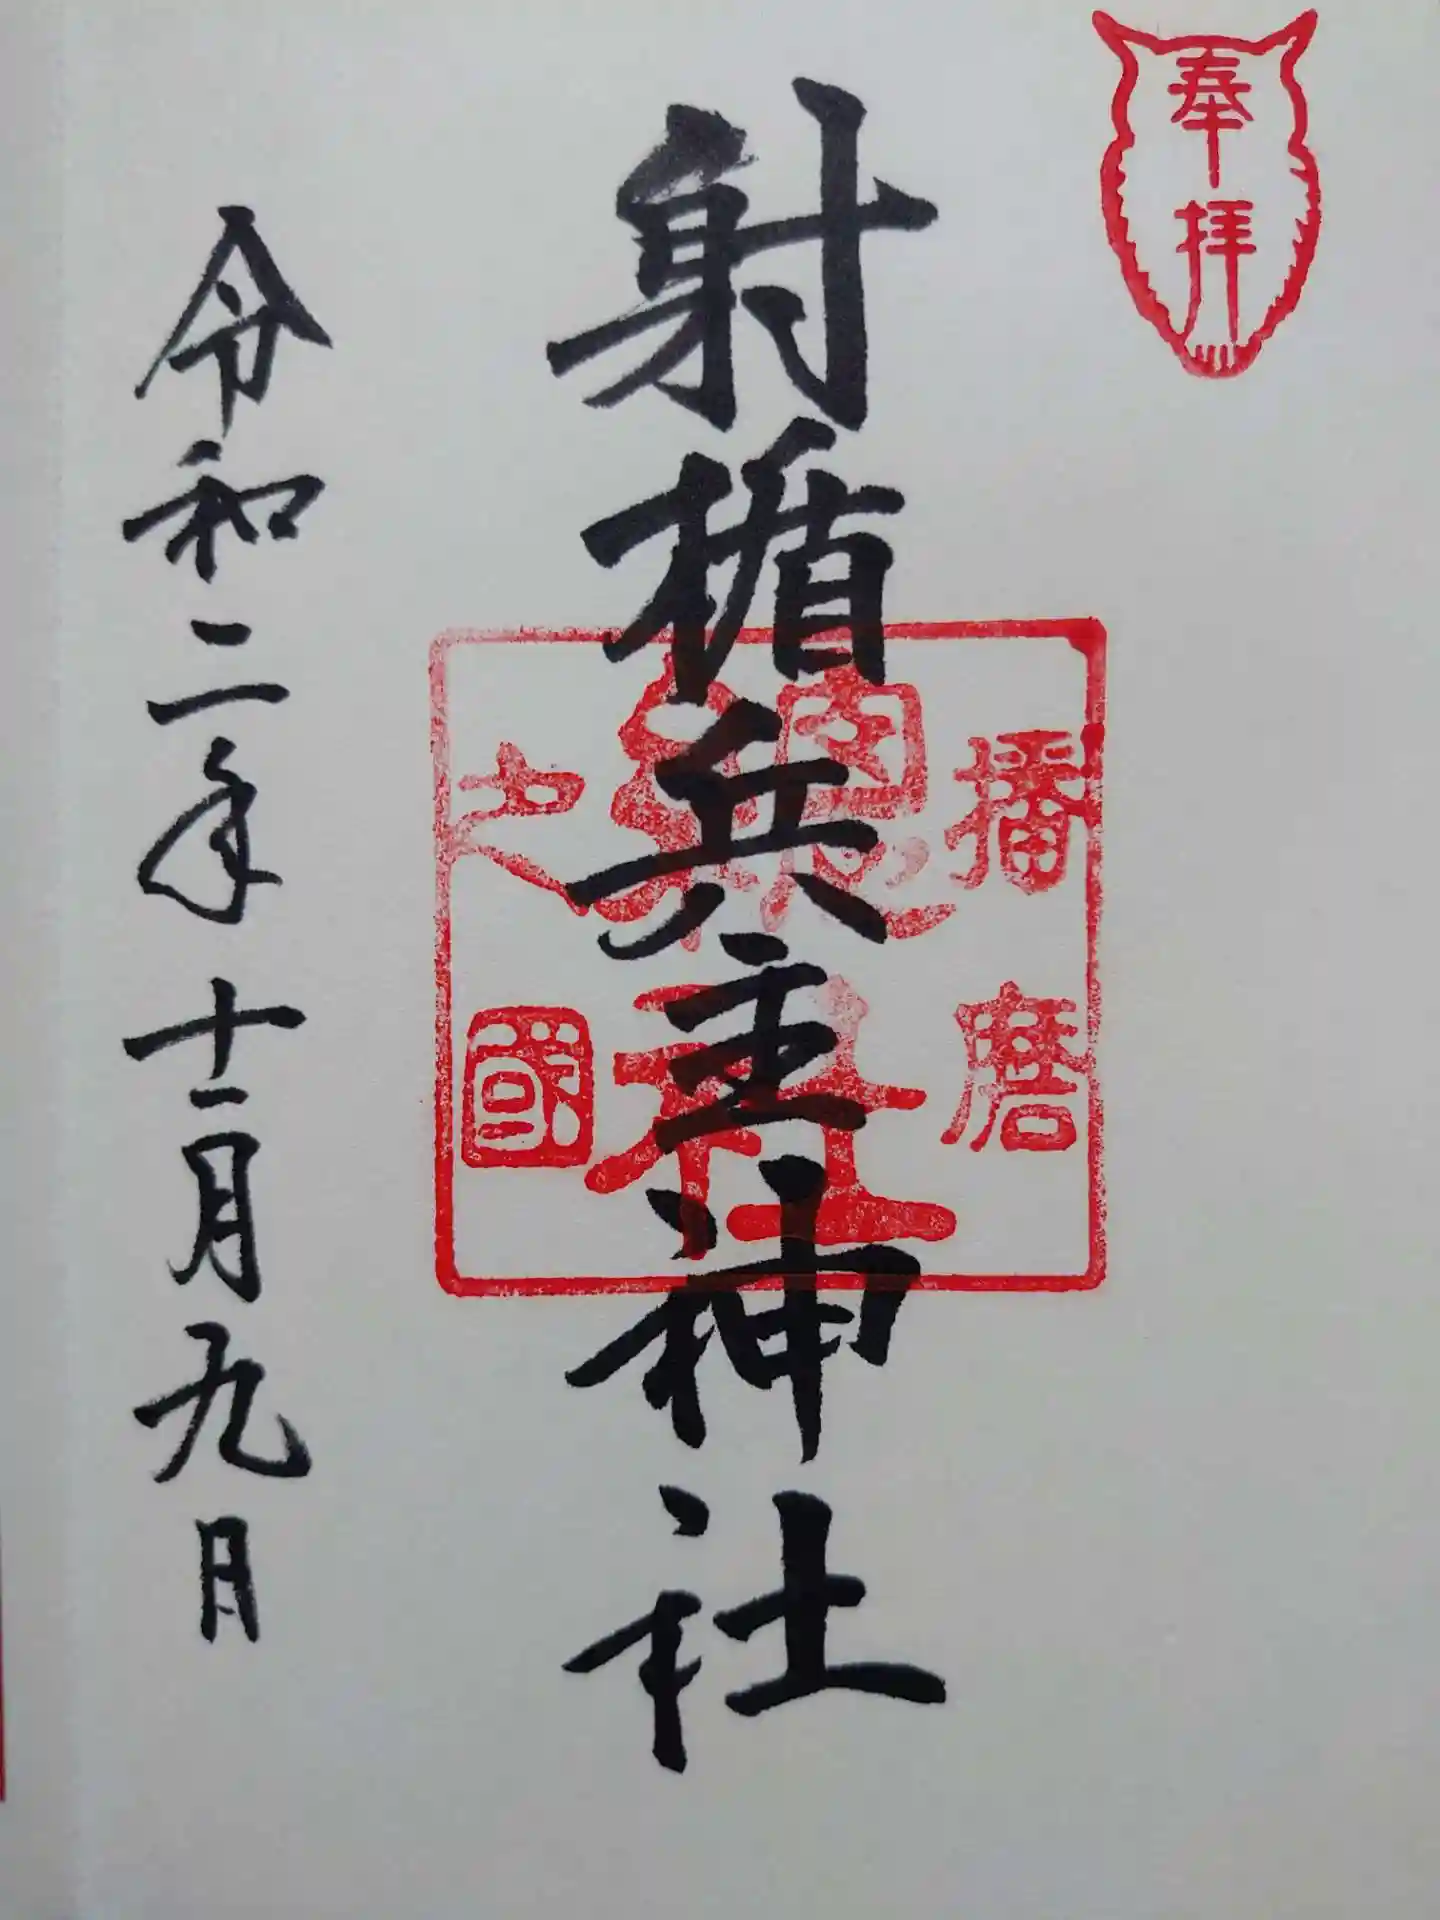 奉拝
射楯兵主神社
播磨
總社
之國
令和二年十一月九日